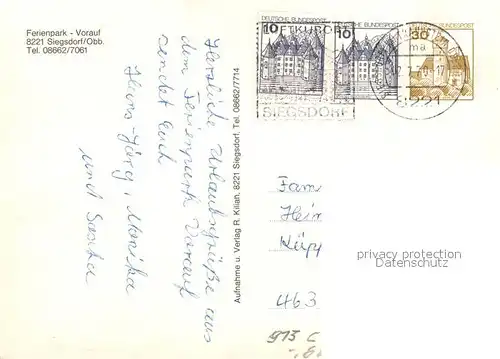 Ferienpark - Vorauf
8221 Siegsdorf/Obb.
Tel. 08662/7061
Herzliche Urlaubsgrüße aus
dem Ferienpark Vorauf
sendet Euch
Hans-Jörg, Marita
und Sascha
Aufnahme u. Verlag R. Kilian, 8221 Siegsdorf, Tel. 08662/7714
10 DEUTSCHE BUNDESPOST
10 DEUTSCHE BUNDESPOST
30 BUNDESPOST
LUFTKURORT
SIEGSDORF
8221
Fam
Hein
Küpp
463
privacy protection
Datenschutz
973 C